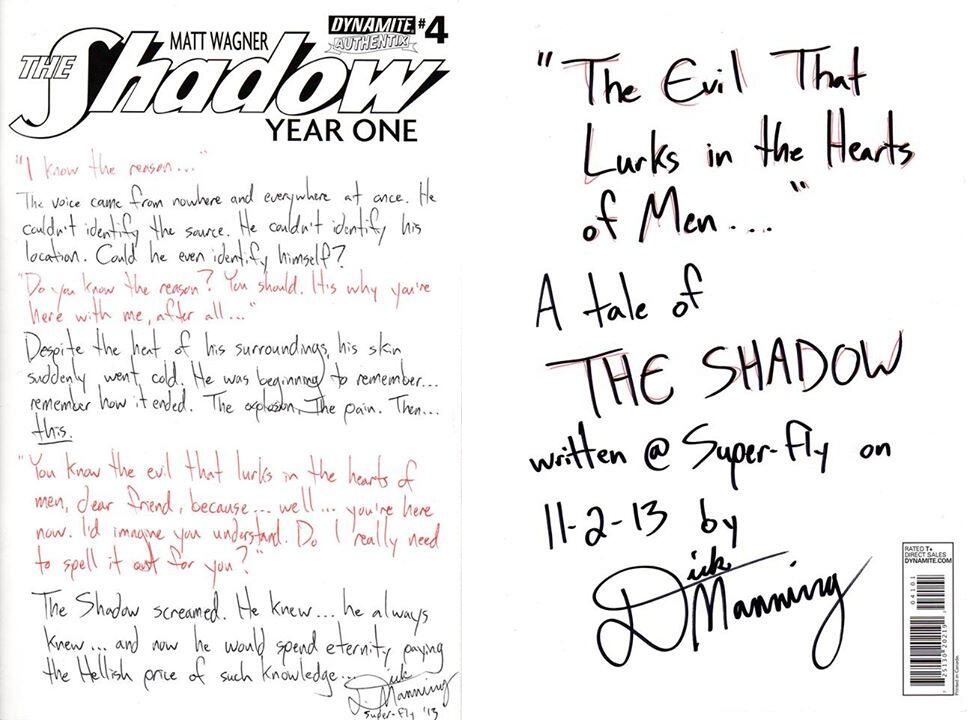 MATT WAGNER
DYNAMITE. #4
AUTHENTIX
THE Shadow
YEAR ONE
"I know the reason..."
The voice came from nowhere and everywhere at once. He
couldn't identify the source. He couldn't identify his
location. Could he even identify himself?
"Do you know the reason? You should. It's why you're
here with me, after all..."
Despite the heat of his surroundings, his skin
suddenly went cold. He was beginning to remember...
remember how it ended. The explosion. The pain. Then...
this.
"You know the evil that lurks in the hearts of
men, dear friend, because... well... you're here
now. I'd imagine you understand. Do I really need
to spell it out for you?"
The Shadow screamed. He knew... he always
knew... and now he would spend eternity paying
the Hellish price of such knowledge...
Dick Manning
Super-Fly '13
"The Evil That
Lurks in the Hearts
of Men...."
A tale of
THE SHADOW
written @ Super-Fly on
11-2-13 by
Dick Manning
RATED T+
DIRECT SALES
DYNAMITE.COM
04101
7 25130 20219 2
Printed in Canada